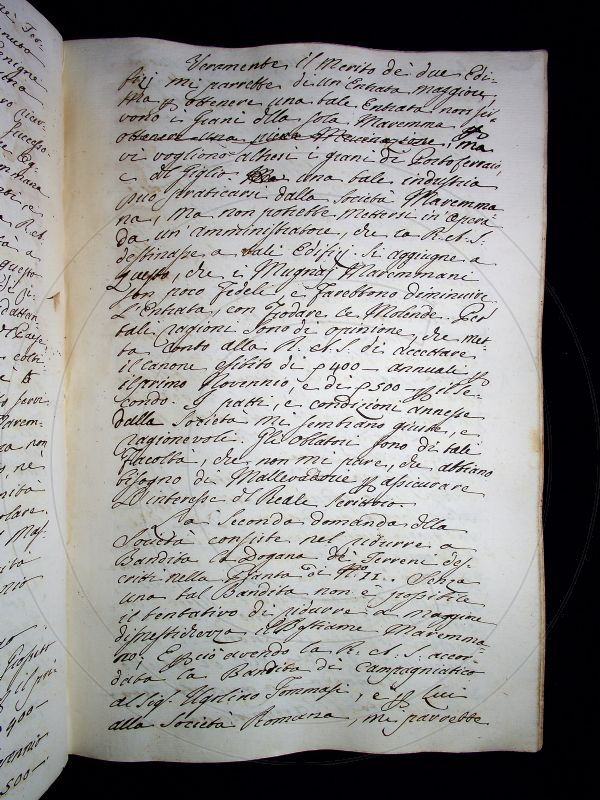 Veramente il Merito dè due Edi-
fizj mi parrebbe di un'Entrata maggiore
ma p ottenere una tale Entrata non ser-
vono i grani della sola Maremma, ma
vi vogliono altresi i grani di Portoferraio,
e del Giglio. una tale industria
può praticarsi dalla Società Maremma-
na, ma non potrebbe mettersi in Opera
da un amministratore, che la R. A. S.
destinasse a tali Edifizj. Si aggiugne a
questo, che i Mugnaj Maremmani
son poco fedeli e farebbono diminuire
l'Entrata, con frodare le Molende. Per
tali ragioni sono di opinione, che met-
ta conto alla R. A. S. di accettare
il canone esibito di p 400 – annuali p
il primo Novennio, e di p 500 – p il se-
condo. I patti, e condizioni annesse
dalla Società mi sembrano giuste, e
ragionevoli. Gli Oblatori sono di tali
facoltà, che non mi pare, che abbiano
bisogno di Mallevadore p assicurare
l'interesse del Reale Scrittoio.
La Seconda domanda della
Società consiste nel ridurre a
Bandita la Dogana de Terreni des-
critti nella Pianta di N.o II. Senza
una tal Bandita non è possibile
il tentativo di ridurre a maggiore
il Bestiame Maremma-
no; E p ciò avendo la R. A. S. accor-
data la Bandita di Campagnatico
al Sig. Ugolino Tommasi, e p Lui
alla Società Romana, mi parrebbe